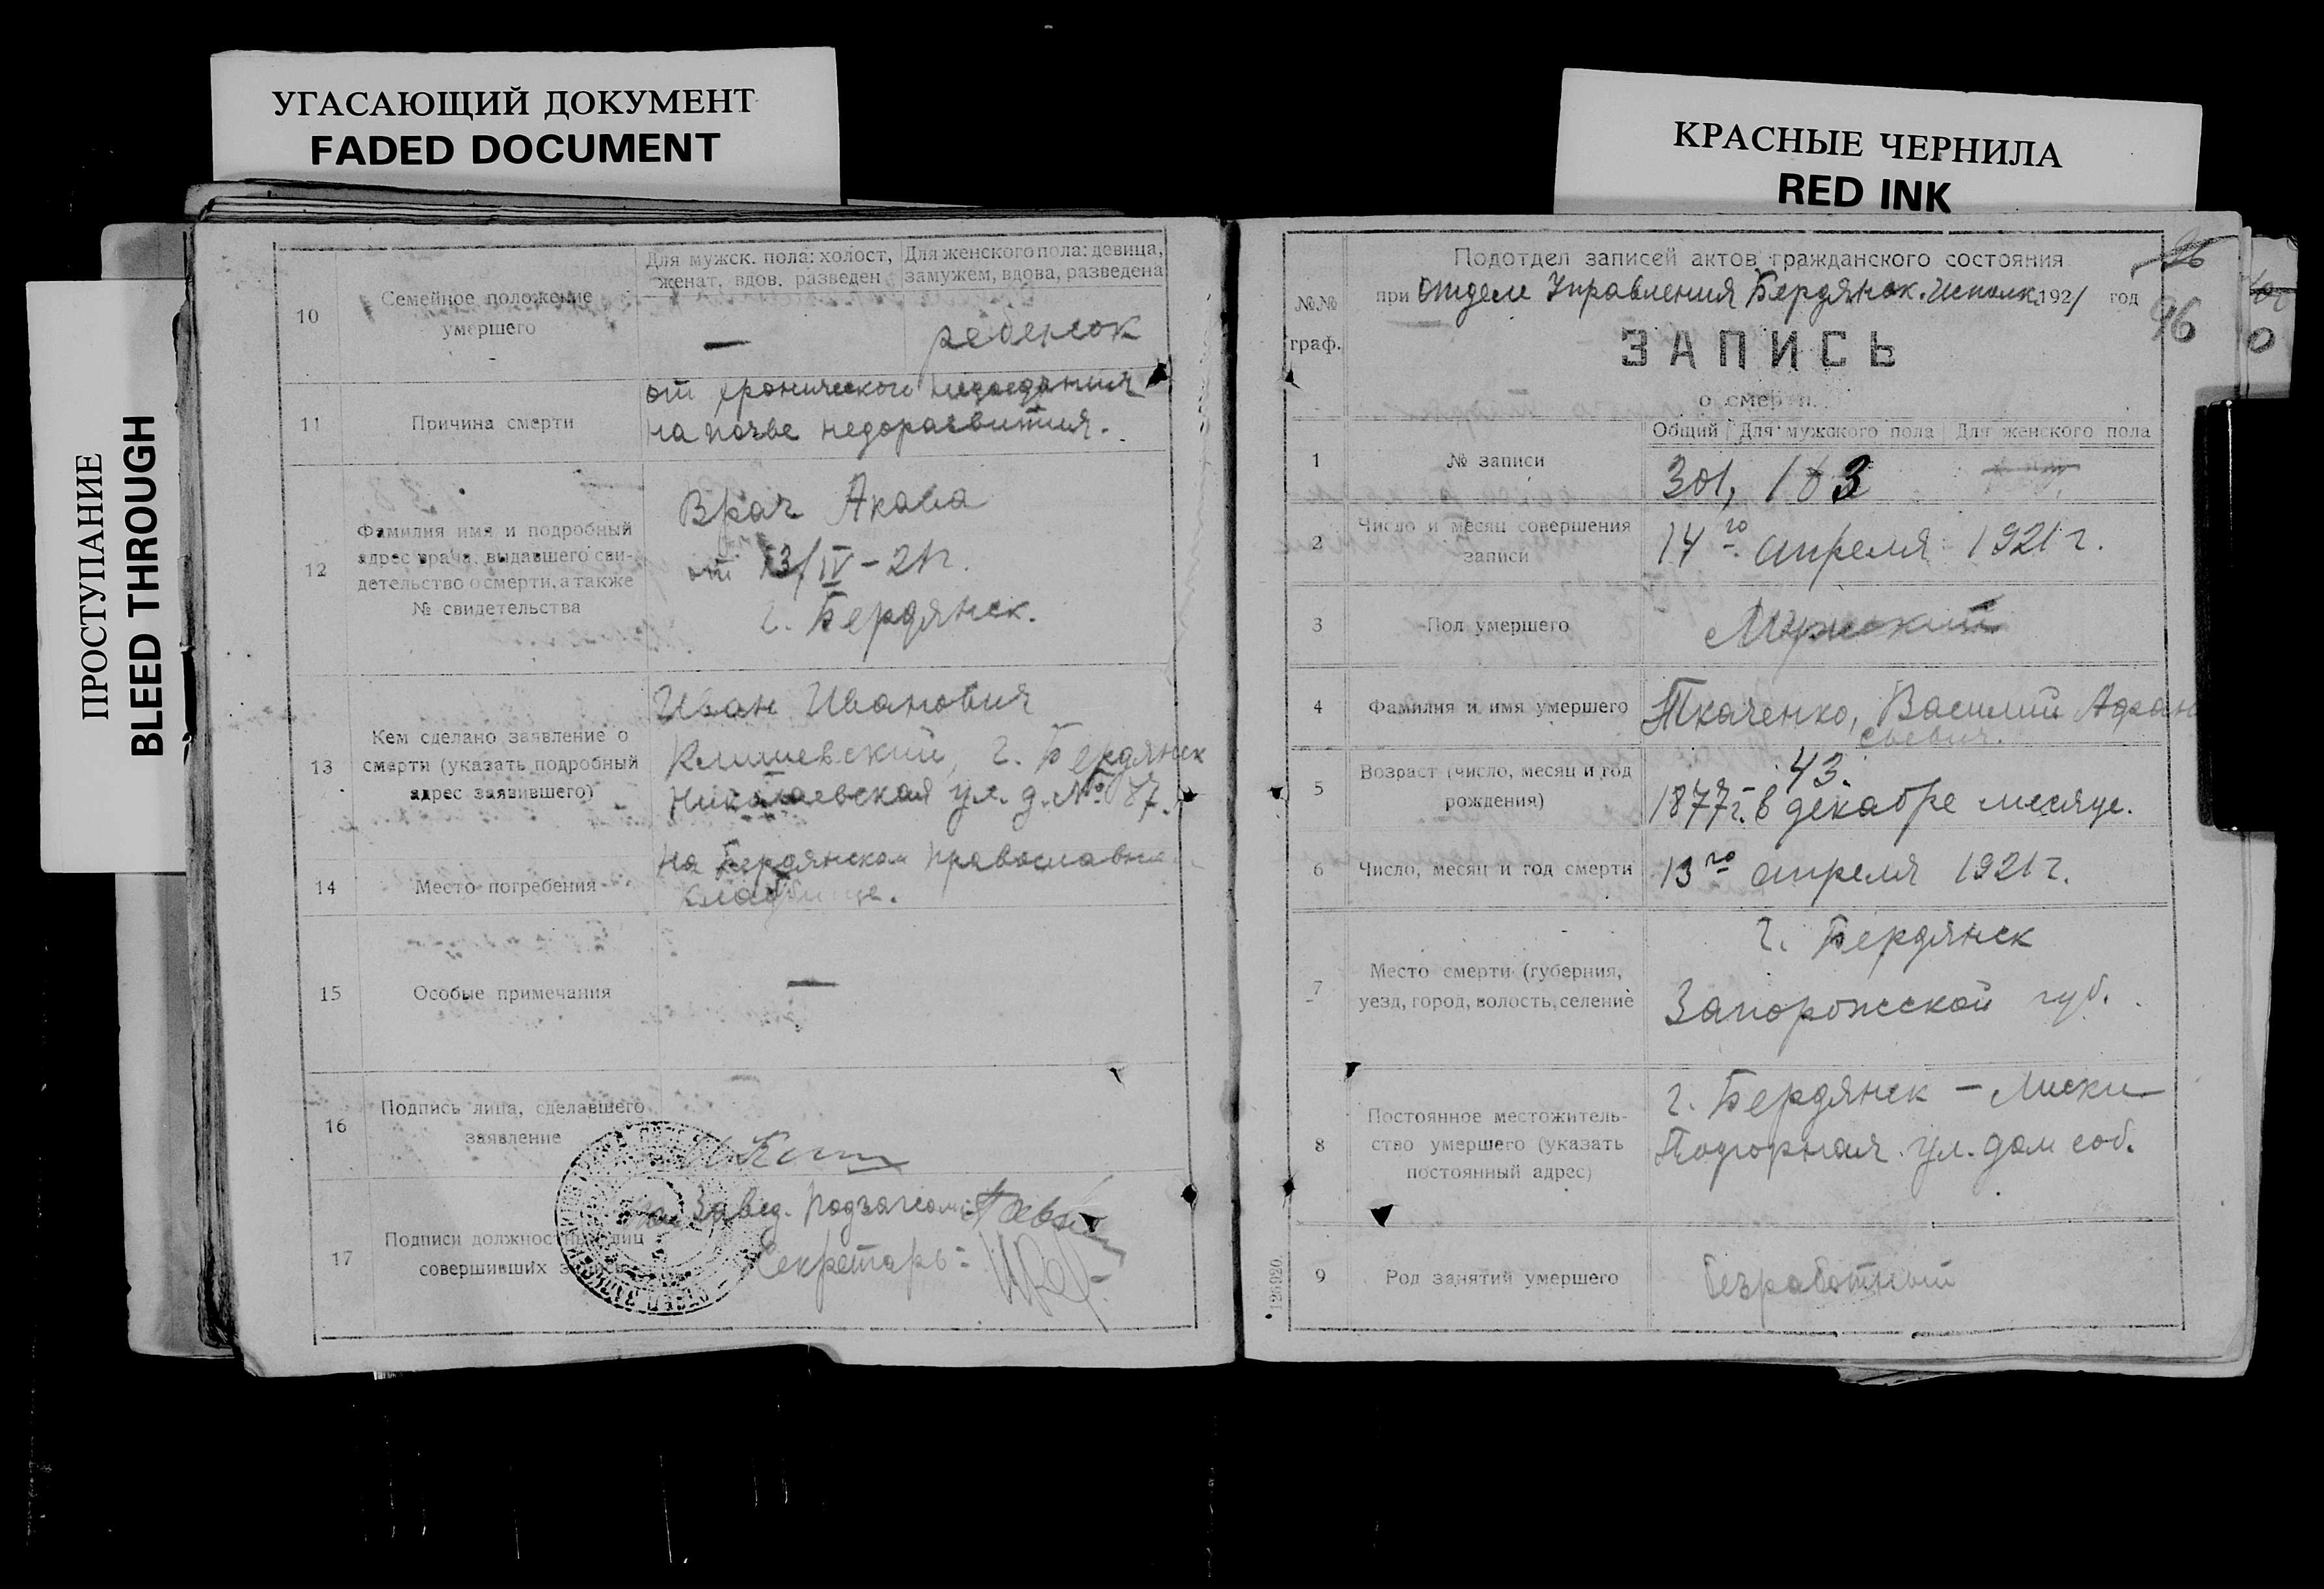 УГАСАЮЩИЙ ДОКУМЕНТ
FADED DOCUMENT
КРАСНЫЕ ЧЕРНИЛА
RED INK
ПРОСТУПАНИЕ
BLEED THROUGH
10
Семейное положение
умершего
Для мужск. пола: холост,
женат, вдов, разведен
Для женского пола: девица,
замужем, вдова, разведена
—
ребенок
11
Причина смерти
от хронического недоедания
на почве недоразвития.
12
Фамилия имя и подробный
адрес врача, выдавшего сви-
детельство о смерти, а также
№ свидетельства
Врач
от 13/IV – 21г.
г. Бердянск.
13
Кем сделано заявление о
смерти (указать подробный
адрес заявившего)
Иван Иванович
г. Бердянск
Николаевская ул. д. № 87.
14
Место погребения
на Бердянском православн
кладбище.
15
Особые примечания
—
16
Подпись лица, сделавшего
заявление
17
Подписи должностных лиц
совершивших
Завед. Подзагсом:
Секретарь:
96
96
№№
граф.
Подотдел записей актов гражданского состояния
при Отделе Управления Бердянск. Исполк. 1921 год
ЗАПИСЬ
о смерти.
Общий
Для мужского пола
Для женского пола
1
№ записи
301, 163
2
Число и месяц совершения
записи
14го апреля 1921 г.
3
Пол умершего
Мужской
4
Фамилия и имя умершего
Ткаченко, Василий Афан
сьевич.
5
Возраст (число, месяц и год
рождения)
43.
1877 г. в декабре месяце.
6
Число, месяц и год смерти
13го апреля 1921 г.
7
Место смерти (губерния,
уезд, город, волость, селение
г. Бердянск
Запорожской губ.
8
Постоянное местожитель-
ство умершего (указать
постоянный адрес)
г. Бердянск – Лиски
Подгорная ул. дом соб.
9
Род занятий умершего
безработный
126920